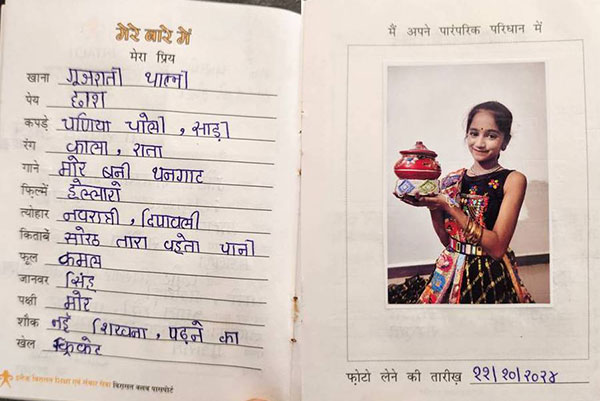 मेरे बारे में
मेरा प्रिय
खाना गुजराती थाली
पेय छाश
कपड़े चणिया चोली, साड़ी
रंग काला, राता
गाने मोर बनी थनगाट
फ़िल्में हेल्लारो
त्योहार नवरात्री, दिपावली
किताबें सोरठ तारा वहेता पानी
फूल कमल
जानवर सिंह
पक्षी मोर
शौक नई शिखना, पढ़ने का
खेल क्रिकेट
विरासत शिक्षा एवं संचार सेवा विरासत क्लब पासपोर्ट
मैं अपने पारंपरिक परिधान में
फ़ोटो लेने की तारीख़ २२/१०/२०२४